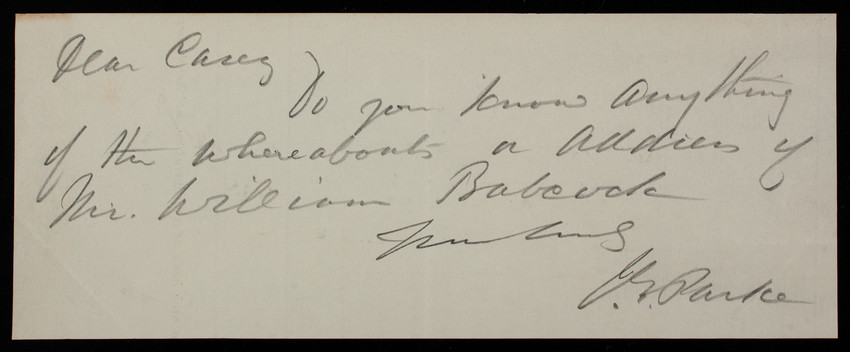 Dear Casey
Do you know anything
of the whereabouts or address of
Mr. William Babcock
Yours truly
J. G. Parke